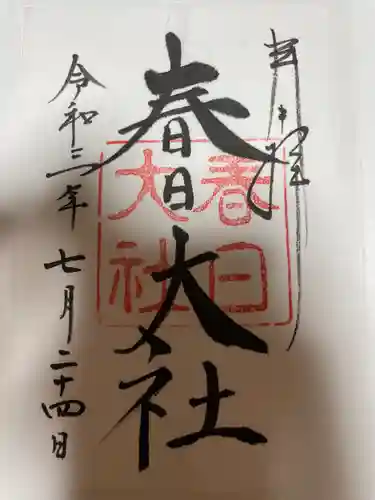 奉拝
春日大社
春日
大社
令和三年七月二十四日